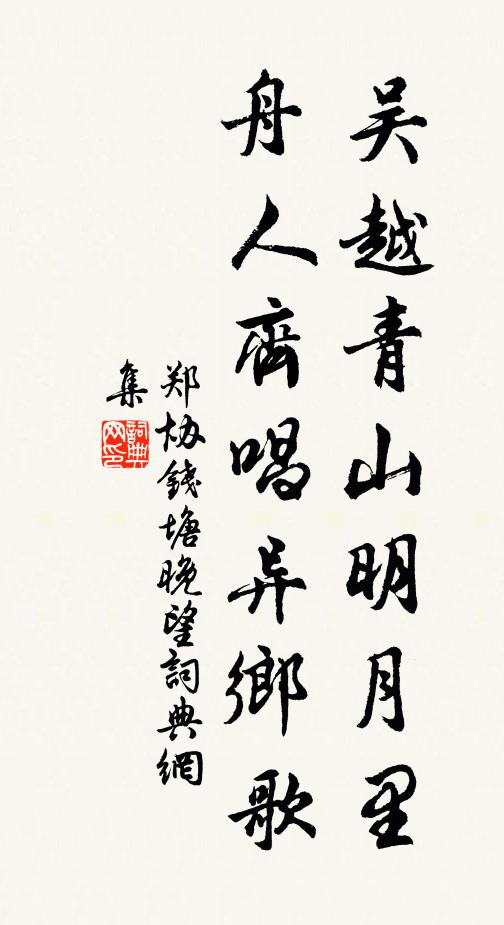 吴越青山明月里
舟人齊唱异鄉歌
郑协錢塘晚望詞典網
集
詞典
网印